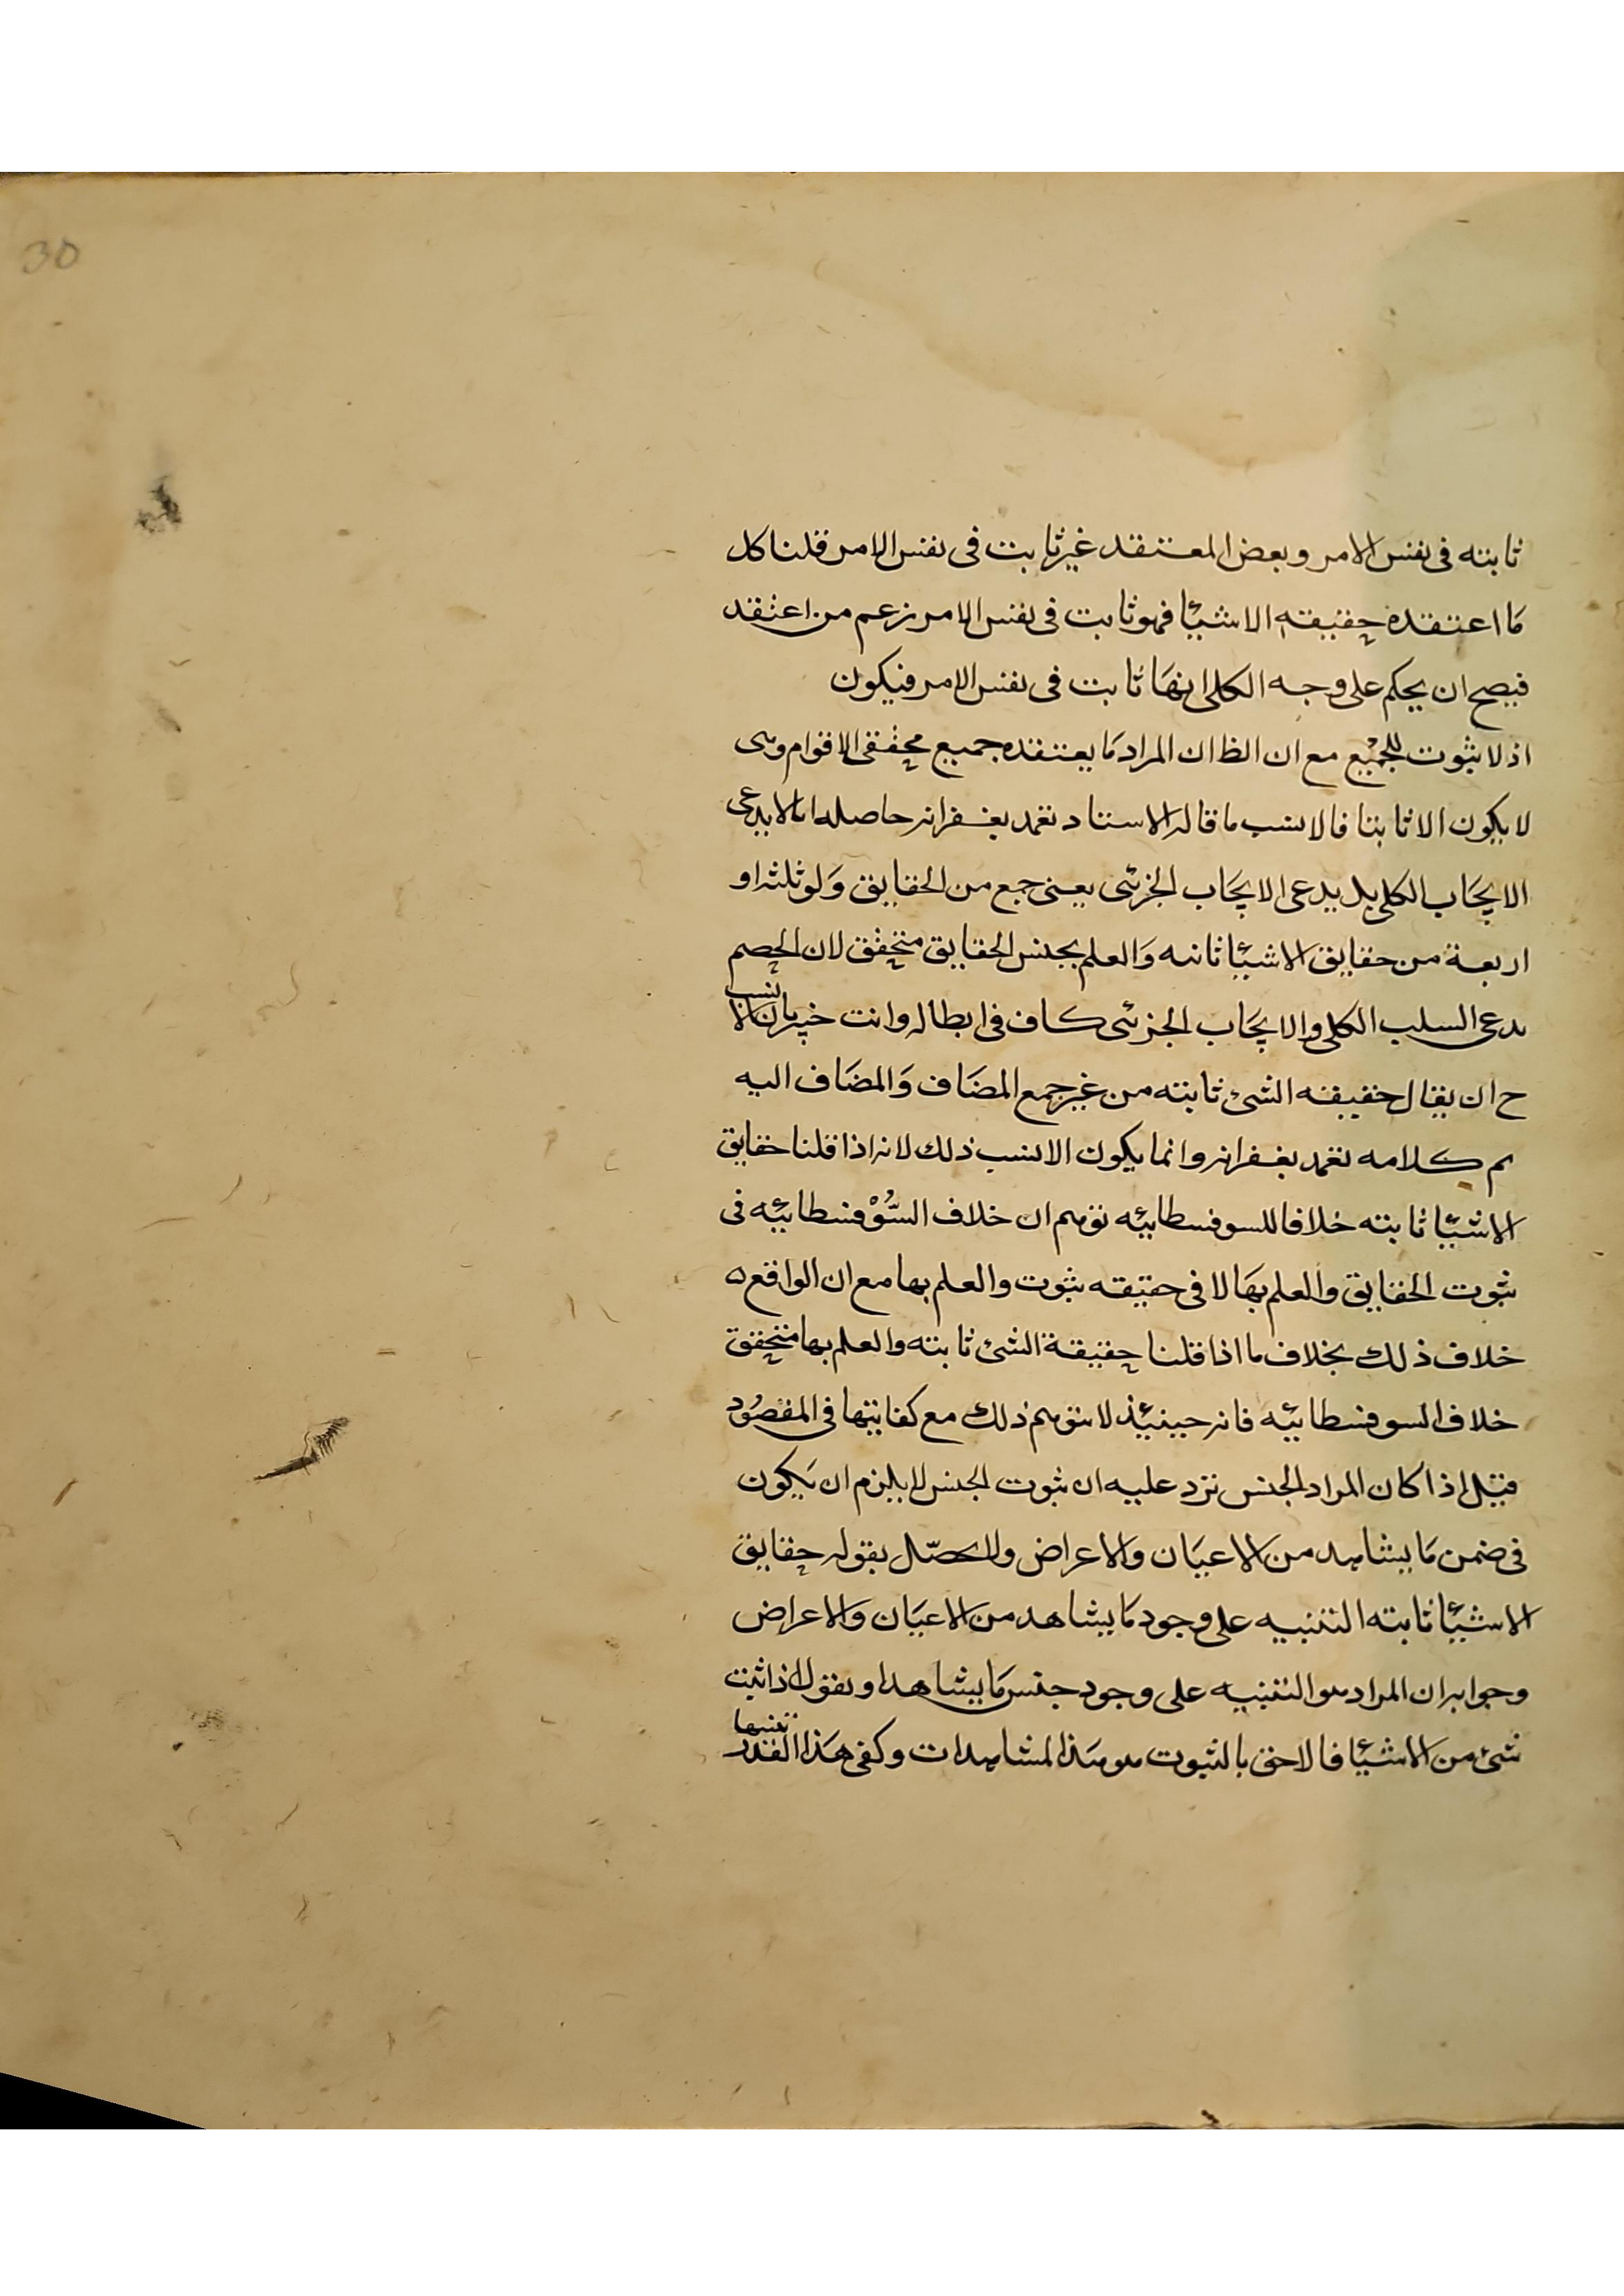 30
ثابته فى نفس الامر وبعض المعتقد غير ثابت فى نفس الامر قلنا كل
ما اعتقده حقيقه الاشيئا فهو ثابت فى نفس الامر زعم من اعتقد
فيصح ان يحكم على وجه الكلى انها ثابت فى نفس الامر فيكون
اذ لا ثبوت للجميع مع ان الظ ان المراد ما يعتقده جميع محققى الاقوام وهى
لا يكون الا ثابتا فالانسب ما قاله الاستاد تغمد بغفرانه حاصله انا لا يدعى
الايجاب الكلى بل يدعى الايجاب الجزئى يعنى جمع من الحقايق ولو ثلثه او
اربعة من حقايق الاشيئا ثابته والعلم بجنس الحقايق متحقق لان الخصم
يدعى السلب الكلى والايجاب الجزئى كاف فى ابطاله وانت خبير بان الانسب
ح ان يقال حقيقه الشئ ثابته من غير جمع المضاف والمضاف اليه
تم كلامه تغمد بغفرانه وانما يكون الانسب ذلك لانه اذا قلنا حقايق
الاشيئا ثابته خلافا للسوفسطائيه توهم ان خلاف السوفسطائيه فى
ثبوت الحقايق والعلم بها لا فى حقيقه ثبوت والعلم بها مع ان الواقع
خلاف ذلك بخلاف ما اذا قلنا حقيقة الشئ ثابته والعلم بها متحقق
خلاف السوفسطائيه فانه حينئذ لا يتوهم ذلك مع كفايتها فى المقصود
قيل اذا كان المراد الجنس ترد عليه ان ثبوت الجنس لا يلزم ان يكون
فى ضمن ما يشاهد من الاعيان والاعراض بقوله حقايق
الاشيئا ثابته التنبيه على وجود ما يشاهد من الاعيان والاعراض
وجوابه ان المراد هو التنبيه على وجود جنس ما يشاهد او يقول اذا ثبت
شئ من الاشيئا فالاحق بالثبوت هو هذا المشاهدات وكفى هذا القدر تنبيها